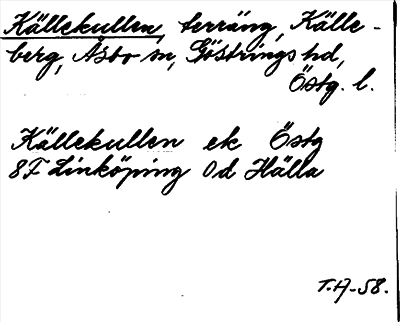 Källekullen, terräng, Källe-
berg, Åsbo sn, Göstrings hd,
Östg. l.
Källekullen ek Östg
8F Linköping 0d Hälla
T.H-58.